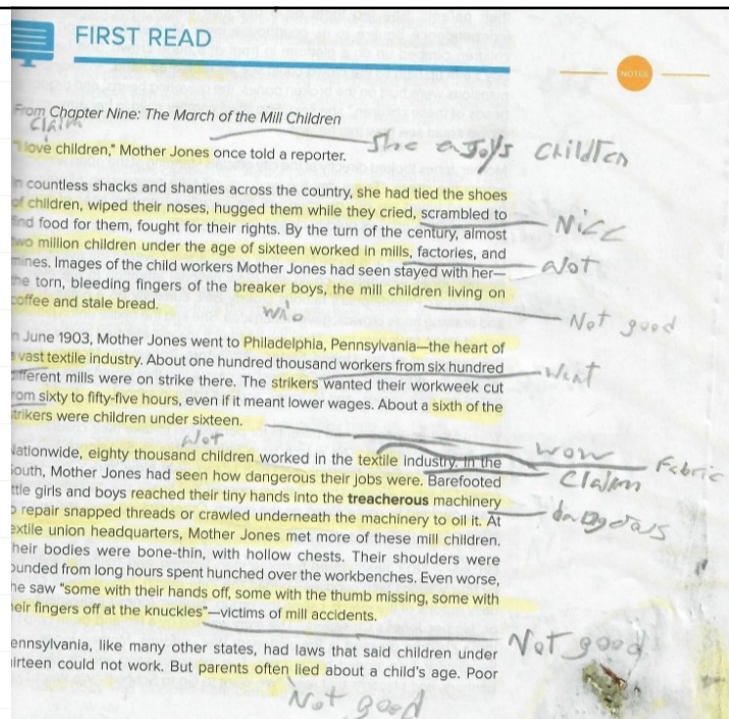 FIRST READ
NOTES
From Chapter Nine: The March of the Mill Children
Claim
"I love children," Mother Jones once told a reporter.
She enjoys children
n countless shacks and shanties across the country, she had tied the shoes
of children, wiped their noses, hugged them while they cried, scrambled to
Nice
ind food for them, fought for their rights. By the turn of the century, almost
wo million children under the age of sixteen worked in mills, factories, and
alot
mines. Images of the child workers Mother Jones had seen stayed with her—
he torn, bleeding fingers of the breaker boys, the mill children living on
coffee and stale bread.
Not good
n June 1903, Mother Jones went to Philadelphia, Pennsylvania—the heart of
a vast textile industry. About one hundred thousand workers from six hundred
Want
ifferent mills were on strike there. The strikers wanted their workweek cut
rom sixty to fifty-five hours, even if it meant lower wages. About a sixth of the
trikers were children under sixteen.
alot
wow
Nationwide, eighty thousand children worked in the textile industry. In the
Fabric
South, Mother Jones had seen how dangerous their jobs were. Barefooted
Claim
ttle girls and boys reached their tiny hands into the treacherous machinery
dangerous
o repair snapped threads or crawled underneath the machinery to oil it. At
extile union headquarters, Mother Jones met more of these mill children.
heir bodies were bone-thin, with hollow chests. Their shoulders were
ounded from long hours spent hunched over the workbenches. Even worse,
he saw "some with their hands off, some with the thumb missing, some with
eir fingers off at the knuckles"—victims of mill accidents.
Not good
ennsylvania, like many other states, had laws that said children under
irteen could not work. But parents often lied about a child's age. Poor
Not good